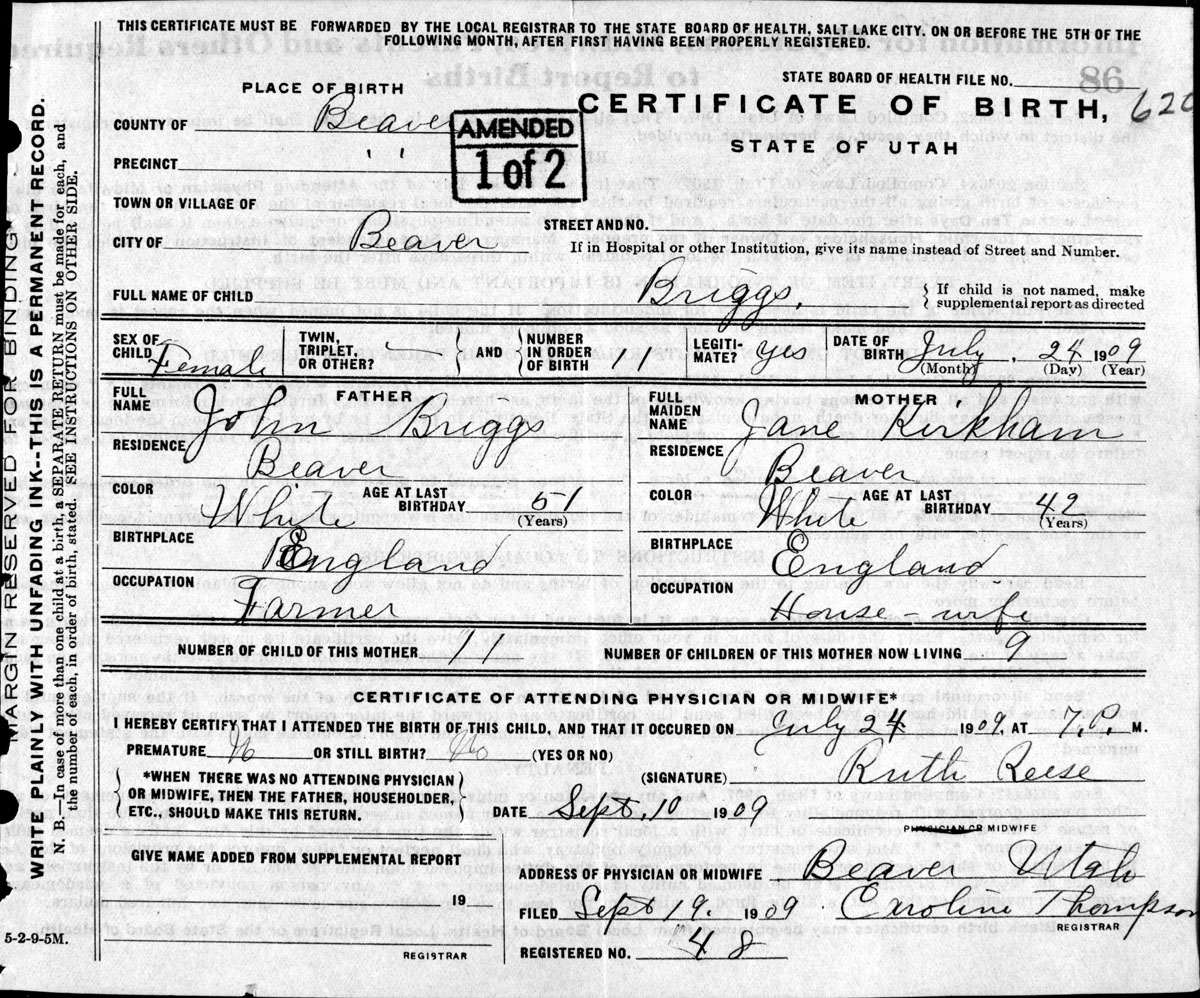 THIS CERTIFICATE MUST BE FORWARDED BY THE LOCAL REGISTRAR TO THE STATE BOARD OF HEALTH, SALT LAKE CITY, ON OR BEFORE THE 5TH OF THE
FOLLOWING MONTH, AFTER FIRST HAVING BEEN PROPERLY REGISTERED.
STATE BOARD OF HEALTH FILE NO.
PLACE OF BIRTH
CERTIFICATE OF BIRTH, 620
STATE OF UTAH
COUNTY OF Beaver
AMENDED
1 of 2
PRECINCT " "
TOWN OR VILLAGE OF
STREET AND NO.
CITY OF Beaver
If in Hospital or other Institution, give its name instead of Street and Number.
FULL NAME OF CHILD Briggs.
If child is not named, make
supplemental report as directed
SEX OF CHILD Female
TWIN, TRIPLET, OR OTHER? —
AND
NUMBER IN ORDER OF BIRTH 11
LEGITIMATE? yes
DATE OF BIRTH July 24 1909
(Month) (Day) (Year)
FATHER
FULL NAME John Briggs
RESIDENCE Beaver
COLOR White AGE AT LAST BIRTHDAY 51
(Years)
BIRTHPLACE England
OCCUPATION Farmer
MOTHER
FULL MAIDEN NAME Jane Kirkham
RESIDENCE Beaver
COLOR White AGE AT LAST BIRTHDAY 42
(Years)
BIRTHPLACE England
OCCUPATION House-wife
NUMBER OF CHILD OF THIS MOTHER 11 NUMBER OF CHILDREN OF THIS MOTHER NOW LIVING 9
CERTIFICATE OF ATTENDING PHYSICIAN OR MIDWIFE*
I HEREBY CERTIFY THAT I ATTENDED THE BIRTH OF THIS CHILD, AND THAT IT OCCURED ON July 24 1909, AT 7.P. M.
PREMATURE No OR STILL BIRTH? No (YES OR NO)
*WHEN THERE WAS NO ATTENDING PHYSICIAN
OR MIDWIFE, THEN THE FATHER, HOUSEHOLDER,
ETC., SHOULD MAKE THIS RETURN.
(SIGNATURE) Ruth Reese
DATE Sept 10 1909
PHYSICIAN OR MIDWIFE
GIVE NAME ADDED FROM SUPPLEMENTAL REPORT
19
REGISTRAR
ADDRESS OF PHYSICIAN OR MIDWIFE Beaver Utah
FILED Sept 19. 1909 Caroline Thompson
REGISTRAR
REGISTERED NO. 48
5-2-9-5M.
MARGIN RESERVED FOR BINDING
WRITE PLAINLY WITH UNFADING INK--THIS IS A PERMANENT RECORD.
N. B.—In case of more than one child at a birth, a SEPARATE RETURN must be made for each, and
the number of each, in order of birth, stated. SEE INSTRUCTIONS ON OTHER SIDE.